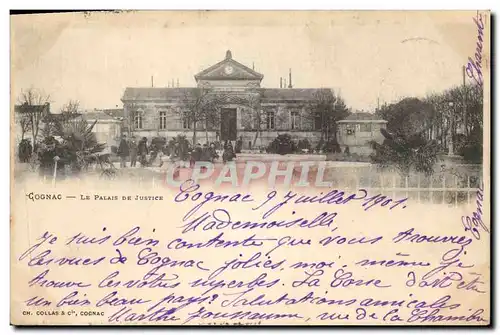 COGNAC — LE PALAIS DE JUSTICE
CPArama
Cognac 9 Juillet 1901.
Mademoiselle,
Je suis bien contente que vous trouviez
les vues de Cognac jolies, moi même je
trouve les vôtres superbes. La Corse doit être
un bien beau pays? Salutations amicales
Marthe rue de la
CH. COLLAS & Cie, COGNAC